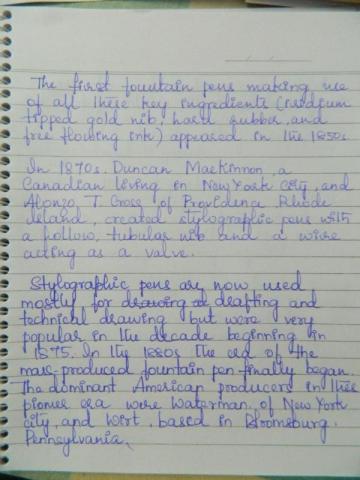 The first fountain pens making use
of all these key ingredients (iridium
tipped gold nib, hard rubber, and
free flowing ink) appeared in the 1850s.
In 1870s. Duncan MacKinnon, a
Canadian living in New York city, and
Alonzo T. Cross of Providence Rhode
island, created stylographic pens with
a hollow, tubular nib and a wire
acting as a valve.
Stylographic pens are now used
mostly for drafting and
technical drawing but were very
popular in the decade beginning in
1875. In the 1880s the era of the
mass-produced fountain pen finally began.
The dominant American producers in this
pioneer era were Waterman, of New York
city, and Wirt, based in Bloomsburg,
Pennsylvania.